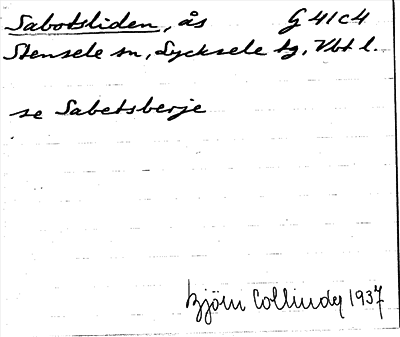 Sabotsliden, ås G 41 c 4
Stensele sn, Lycksele tg, Vbt l.
se Sabetsberje
Björn Collinder 1937